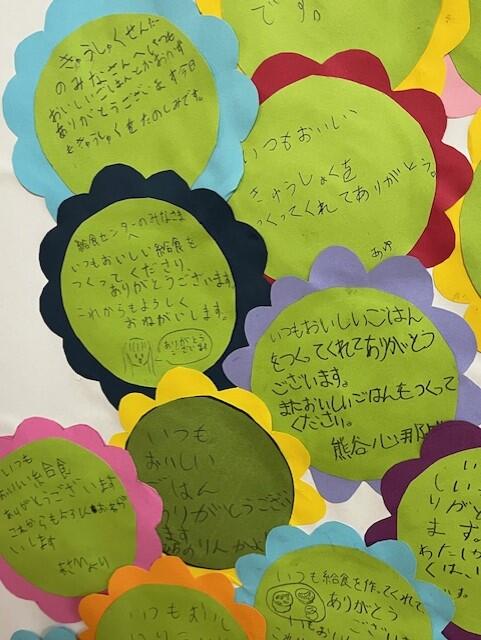 です。
きゅうしゃくせんた
のみなさんへいつも
おいしいごはんとかおかず
ありがとうございます今日
もきゅうしゃくをたのしみです。
いつもおいしい
きゅうしょくを
つくってくれてありがとう。
あゆ
給食センターのみなさま
へ
いつもおいしい給食を
つくってくださり、
ありがとうございます。
これからもよろしく
おねがいします。
ありがとう
ございます
いつもおいしいごはん
をつくってくれてありがとう
ございます。
またおいしいごはんをつくって
ください。
熊谷心
いつも
おいしい
ごはん
ありがとうござい
ます
いつも
おいしい給食
ありがとうございます
これからもよろしくおねが
いします
より
い
しい
りがと
ます。
わたしか
くは、
い
いつも給食を作ってくれて
ありがとう
ございま
いつもおいし